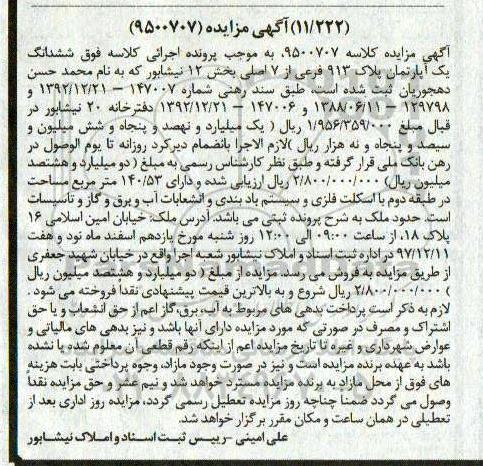 (۱۱/۲۲۲) آگهی مزایده (۹۵۰۰۷۰۷)
آگهی مزایده کلاسه ۹۵۰۰۷۰۷، به موجب پرونده اجرائی کلاسه فوق ششدانگ
یک آپارتمان پلاک ۹۱۳ فرعی از ۷ اصلی بخش ۱۲ نیشابور که به نام محمد حسن
دهجوریان ثبت شده است، طبق سند رهنی شماره ۱۴۷۰۰۷ – ۱۳۹۲/۱۲/۲۱ و
۱۲۹۷۹۸ – ۱۳۸۸/۰۶/۱۱ و ۱۴۷۰۰۶ – ۱۳۹۲/۱۲/۲۱ دفترخانه ۲۰ نیشابور در
قبال مبلغ ۱/۹۵۶/۳۵۹/۰۰۰ ریال ( یک میلیارد و نهصد و پنجاه و شش میلیون و
سیصد و پنجاه و نه هزار ریال )لازم الاجرا بانضمام دیرکرد روزانه تا یوم الوصول در
رهن بانک ملی قرار گرفته و طبق نظر کارشناس رسمی به مبلغ ( دو میلیارد و هشتصد
میلیون ریال) ۲/۸۰۰/۰۰۰/۰۰۰ ریال ارزیابی شده و دارای ۱۴۰/۵۳ متر مربع مساحت
در طبقه دوم با اسکلت فلزی و سیستم باد بندی و انشعابات آب و برق و گاز و تأسیسات
است. حدود ملک به شرح پرونده ثبتی می باشد. آدرس ملک، خیابان امین اسلامی ۱۶
پلاک ۱۸، از ساعت ۰۹:۰۰ الی ۱۲:۰۰ روز شنبه مورخ یازدهم اسفند ماه نود و هفت
۹۷/۱۲/۱۱ در اداره ثبت اسناد و املاک نیشابور شعبه اجرا واقع در خیابان شهید جعفری
از طریق مزایده به فروش می رسد. مزایده از مبلغ ( دو میلیارد و هشتصد میلیون ریال
) ۲/۸۰۰/۰۰۰/۰۰۰ ریال شروع و به بالاترین قیمت پیشنهادی نقداً فروخته می شود .
لازم به ذکر است پرداخت بدهی های مربوط به آب، برق، گاز اعم از حق انشعاب و یا حق
اشتراک و مصرف در صورتی که مورد مزایده دارای آنها باشد و نیز بدهی های مالیاتی و
عوارض شهرداری و غیره تا تاریخ مزایده اعم از اینکه رقم قطعی آن معلوم شده یا نشده
باشد به عهده برنده مزایده است و نیز در صورت وجود مازاد، وجوه پرداختی بابت هزینه
های فوق از محل مازاد به برنده مزایده مسترد خواهد شد و نیم عشر و حق مزایده نقداً
وصول می گردد ضمناً چناچه روز مزایده تعطیل رسمی گردد، مزایده روز اداری بعد از
تعطیلی در همان ساعت و مکان مقرر برگزار خواهد شد.
علی امینی –رییس ثبت اسناد و املاک نیشابور